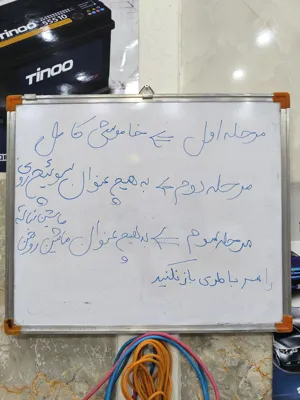 TINOO
55510
TINOO
مرحله اول => خاموشی کامل
مرحله دوم => به هیچ عنوان سوئیچ روی
ماشین نباشه
مرحله سوم => به هیچ عنوان ماشین روشن
را سر باطری باز نکنید